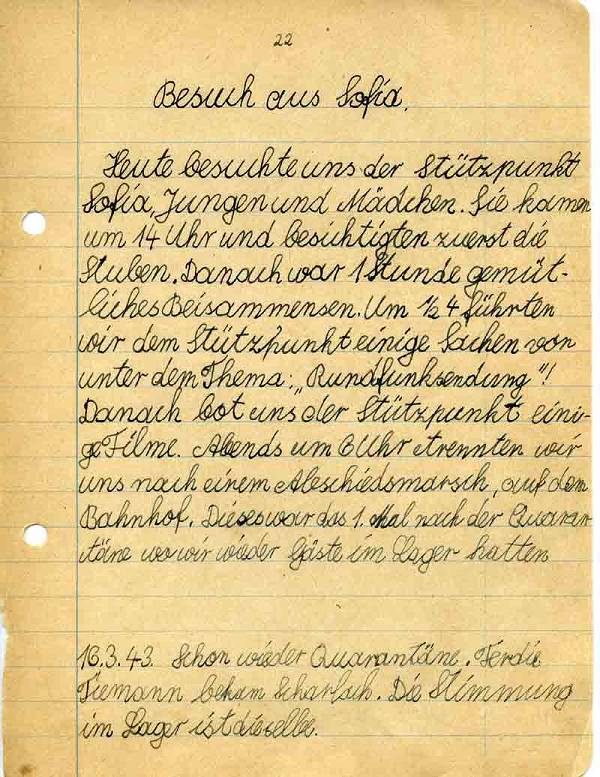 22
Besuch aus Sofia.
Heute besuchte uns der Stützpunkt
Sofia, Jungen und Mädchen. Sie kamen
um 14 Uhr und besichtigten zuerst die
Stuben. Danach war 1 Stunde gemüt-
liches Beisammensen. Um ½ 4 führten
wir dem Stützpunkt einige Sachen von
unter dem Thema: „Rundfunksendung"!
Danach bot uns der Stützpunkt eini-
ge Filme. Abends um 6 Uhr trennten wir
uns nach einem Abschiedsmarsch, auf dem
Bahnhof. Dieses war das 1. Mal nach der Quaran-
täne wo wir wieder Gäste im Lager hatten
16.3.43. Schon wieder Quarantäne. Ferdie
Tiemann bekam Scharlach. Die Stimmung
im Lager ist dieselbe.